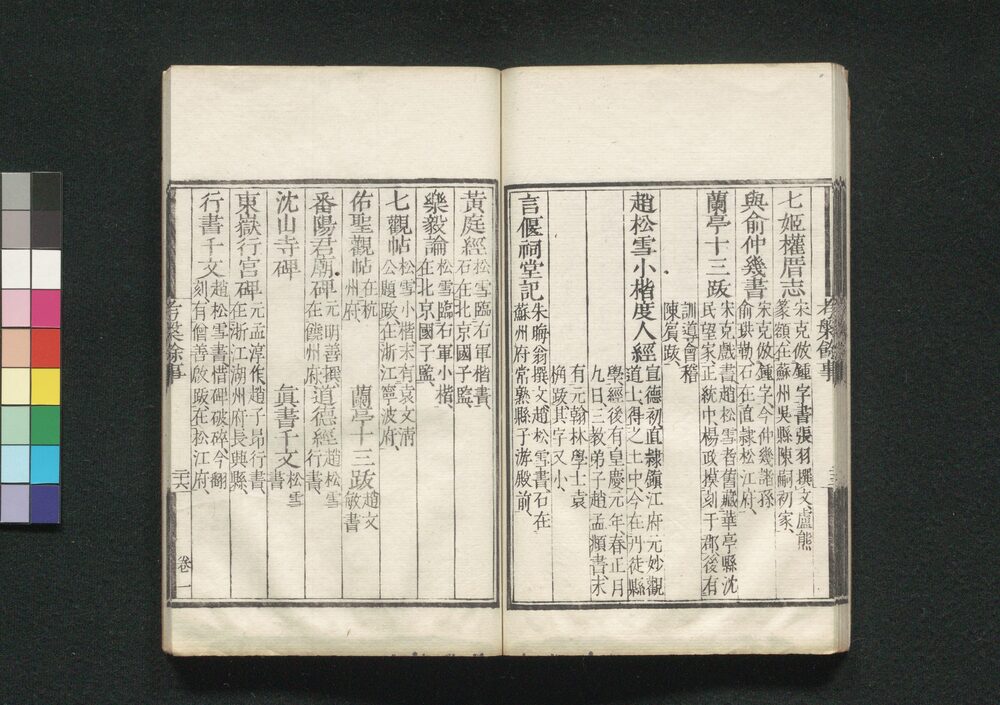 七姬權厝志宋克倣鍾字書張羽撰文盧熊
篆額在蘇州吳縣陳嗣初家
與俞仲幾書宋克倣鍾字今仲幾諸孫
俞珙勒石在直隸松江府
蘭亭十三跋宋克戲書趙松雪者舊藏華亭縣沈
民望家正統中楊政摸刻于郡後有
訓導會稽
陳賓跋
趙松雪小楷度人經宣德初直隷鎮江府元妙觀
道士得之土中今在丹徒縣
學經後有皇慶元年春正月
九日三教弟子趙孟頫書末
有元翰林學士袁
桷跋其字又小
言偃祠堂記朱晦翁撰文趙松雪書石在
蘇州府常熟縣子游殿前
考槃餘事
黃庭經松雪臨右軍楷書
石在北京國子監
樂毅論松雪臨右軍小楷
在北京國子監
七觀帖松雪小楷末有袁文清
公題跋在浙江寧波府
佑聖觀帖在杭
州府
蘭亭十三跋趙文
敏書
番陽君廟碑元明善撰
在饒州府
道德經趙松雪
行書
沈山寺碑
眞書千文松雪
書
東嶽行宮碑元孟淳作趙子昂行書
在浙江湖州府長興縣
行書千文趙松雪書惜碑破碎今翻
刻有僧善啟跋在松江府
考槃餘事
二六
卷一